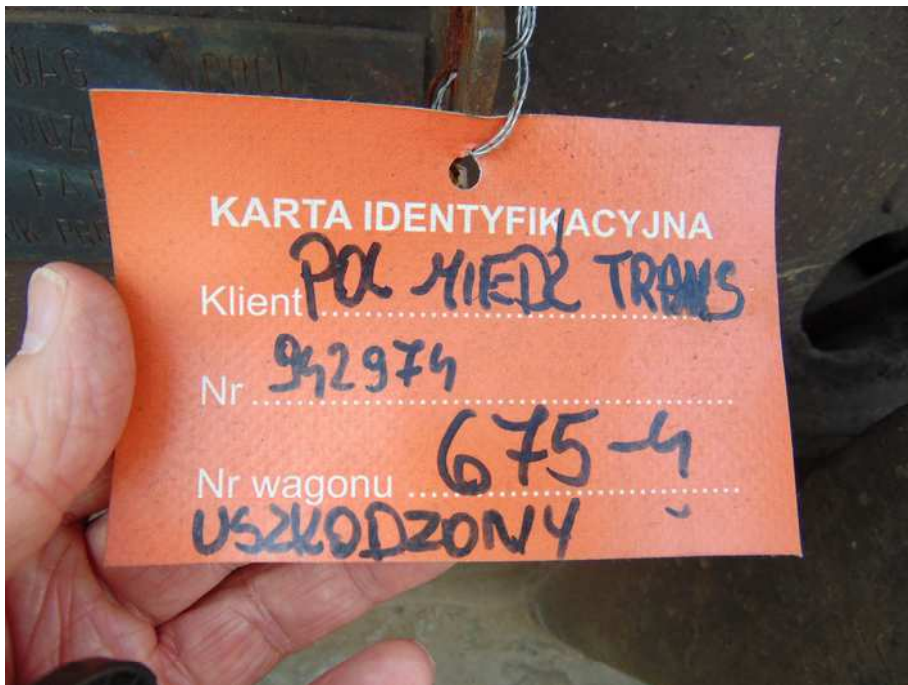 KARTA IDENTYFIKACYJNA
Klient POL MIEDŹ TRANS
Nr 942974
Nr wagonu 675-4
USZKODZONY